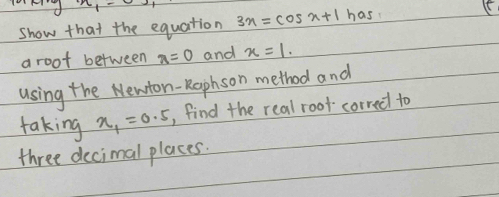 Show that the equation 3x = cos x + 1 has
a root between x = 0 and x = 1.
using the Newton-Raphson method and
taking x₁ = 0.5, find the real root correct to
three decimal places.